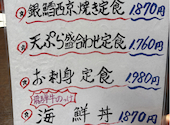 銀鱈西京焼き定食 1870円
天ぷら盛合わせ定食 1,760円
お刺身定食 1,980円
飛騨牛のっけ
海鮮丼 1870円